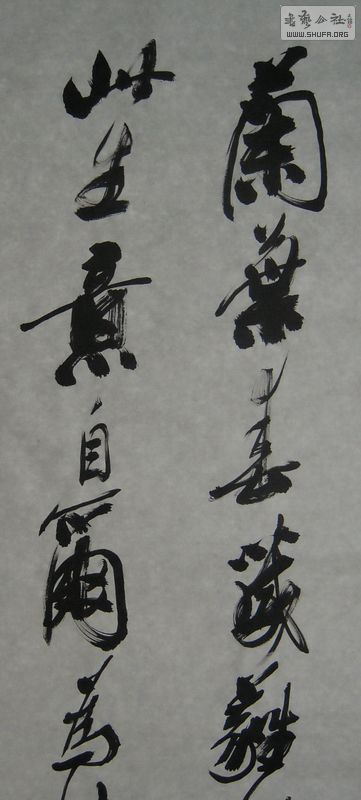 蘭葉春葳蕤
此生意自爾為
書藝公社
WWW.SHUFA.ORG